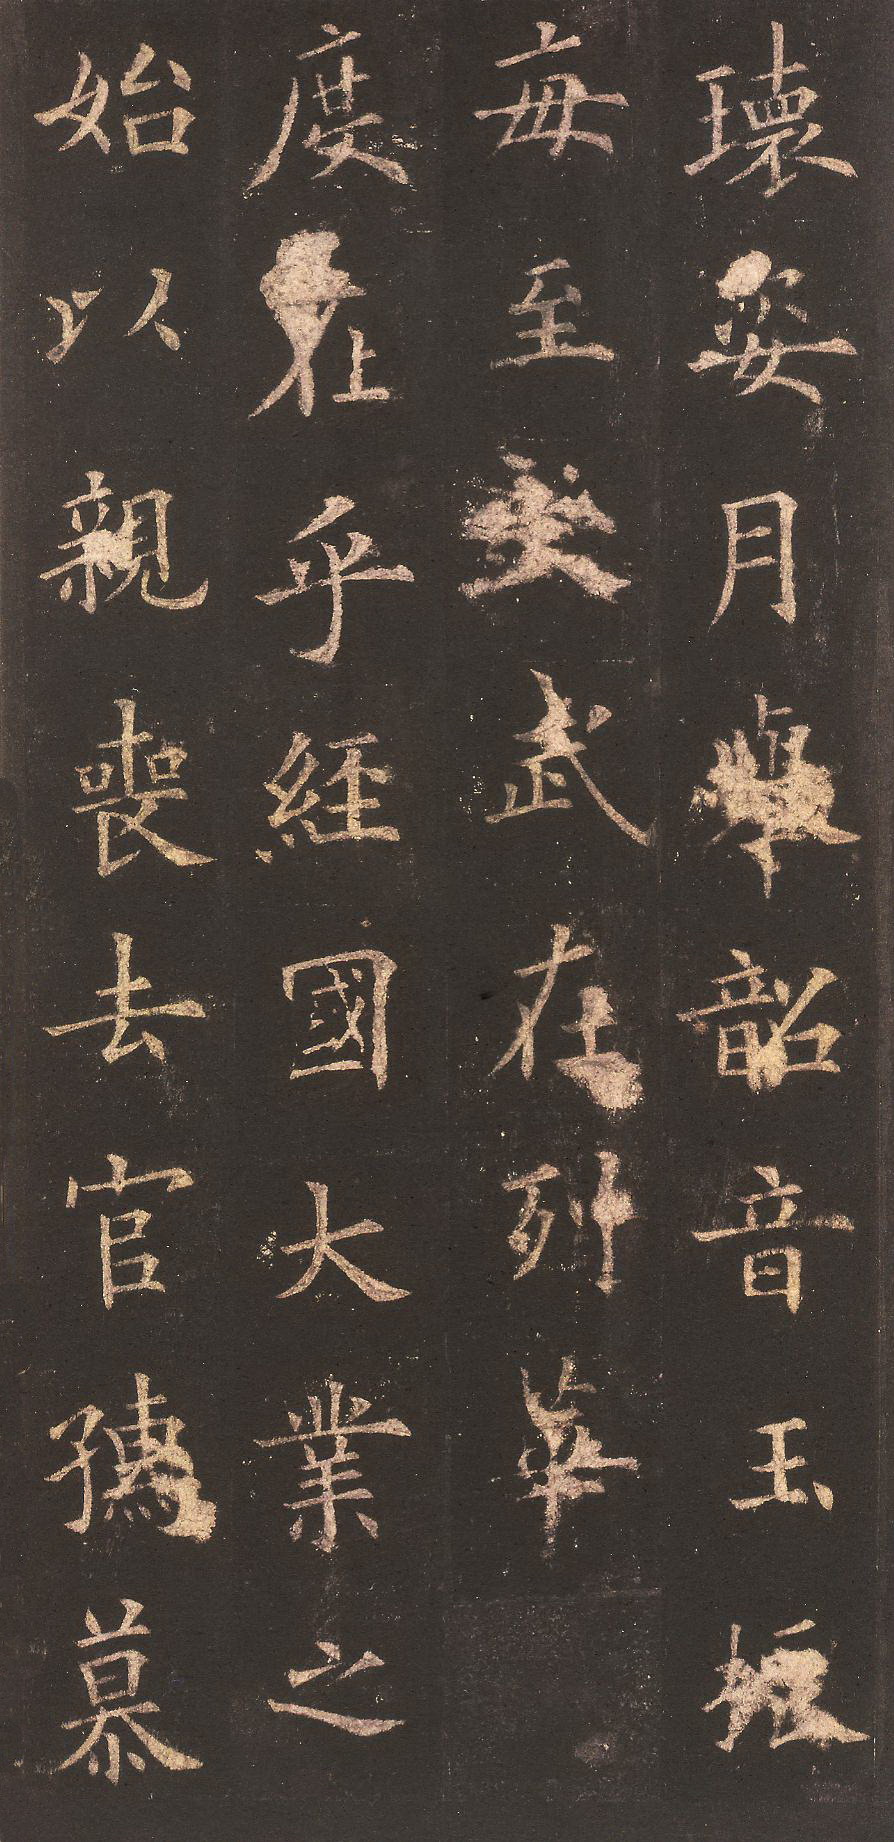 瓌姿月舉韶音玉振
每至武在列華
度在乎經國大業之
始以親喪去官孺慕